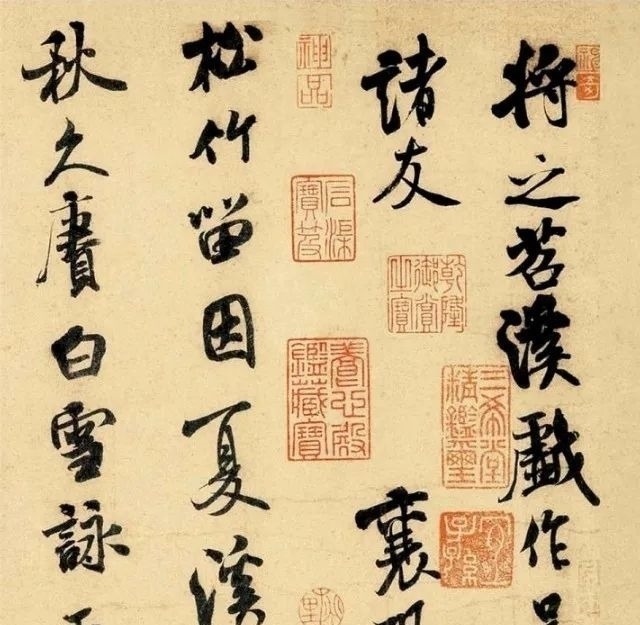 将之苕溪戲作呈
諸友
襄陽
松竹留因夏溪
秋久賡白雪詠
神品
石渠寶笈
乾隆御賞之寶
養心殿鑑藏寶
三希堂精鑑璽
宜子孫